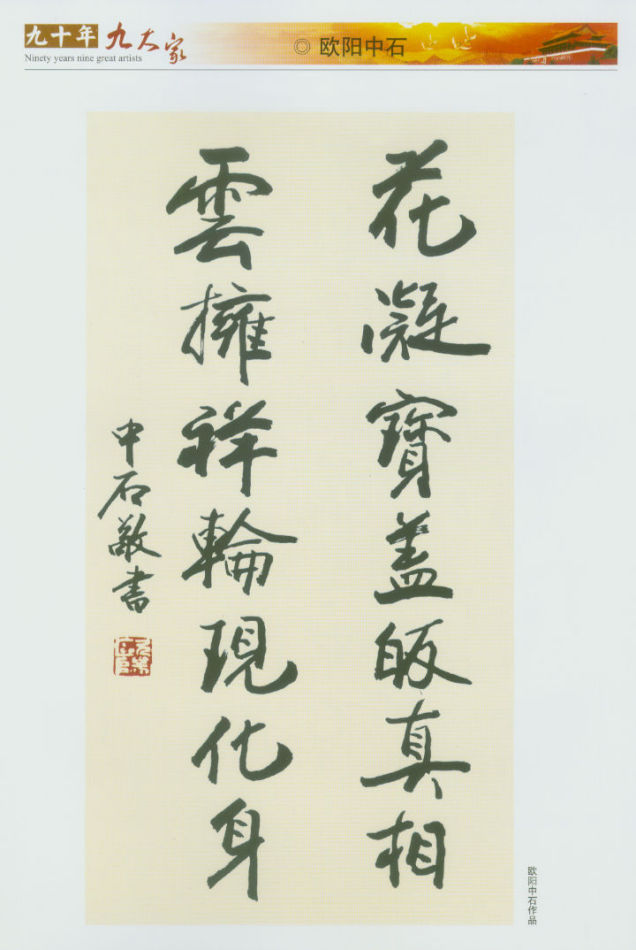 九十年 九大家
Ninety years nine great artists
◎ 欧阳中石
花凝寶盖皈真相
雲擁祥輪現化身
中石敬書
欧阳中石作品